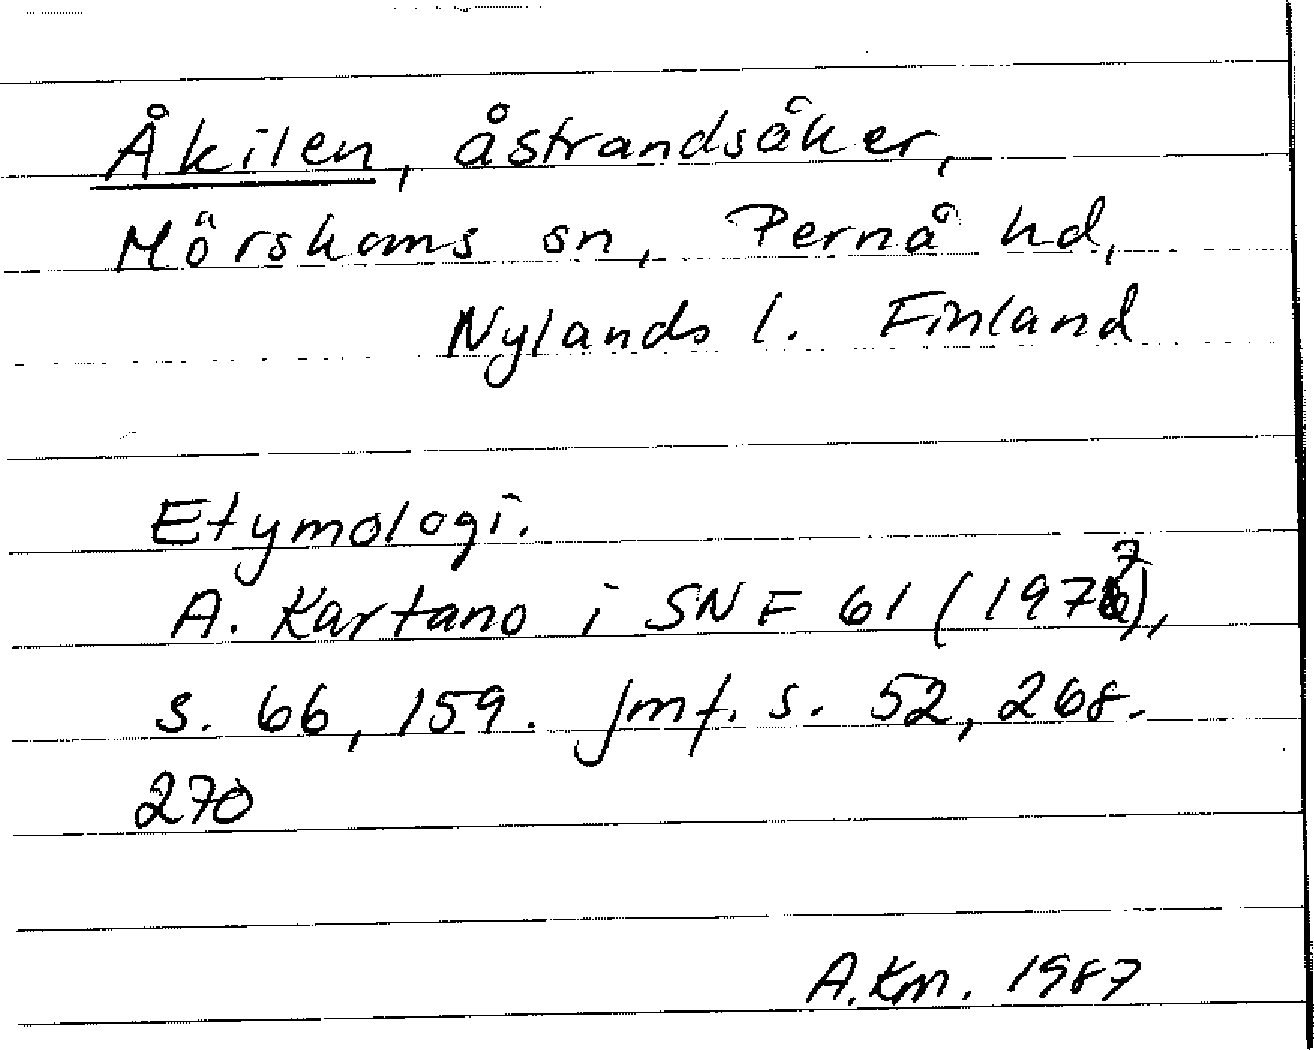 Åkilen, åstrandsåker,
Mörskoms sn, Pernå hd,
Nylands l. Finland
Etymologi.
A. Kartano i SNF 61 (1977),
s. 66, 159. Jmf. s. 52, 268-
270
A.Km. 1987